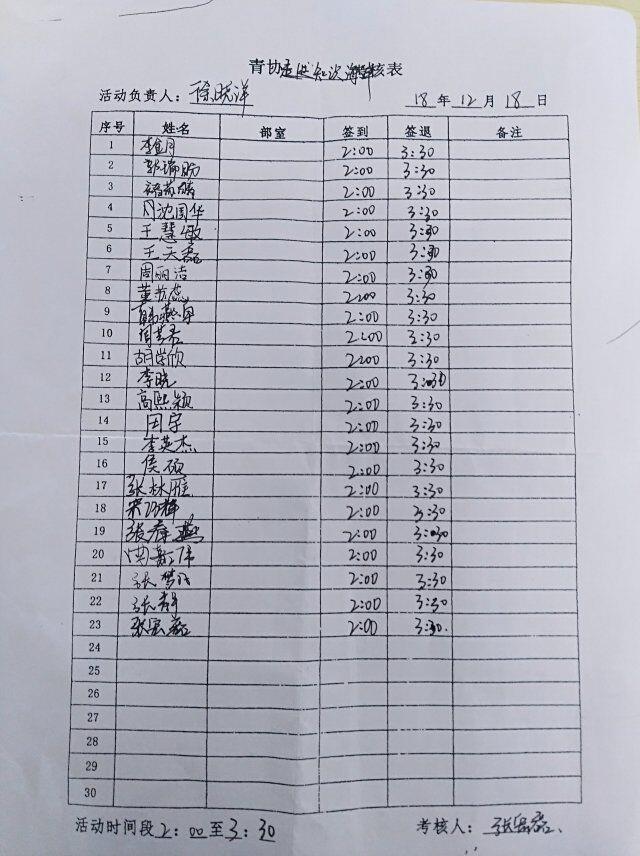 青协 知识 核表
活动负责人: 徐晓洋 18年12月18日
序号 姓名 部室 签到 签退 备注
1 李 月 2:00 3:30
2 郭瑞 2:00 3:30
3 2:00 3:30
4 周沈国华 2:00 3:30
5 王慧敏 2:00 3:30
6 王天磊 2:00 3:30
7 周丽洁 2:00 3:30
8 董 2:00 3:30
9 韩燕 2:00 3:30
10 周芸 2:00 3:30
11 胡学欣 2:00 3:30
12 李晓 2:00 3:30
13 高熙颖 2:00 3:30
14 田宇 2:00 3:30
15 李英杰 2:00 3:30
16 侯硕 2:00 3:30
17 张林雁 2:00 3:30
18 宋 2:00 3:30
19 张春燕 2:00 3:30
20 伟 2:00 3:30
21 张梦 2:00 3:30
22 张 2:00 3:30
23 张 2:00 3:30
24
25
26
27
28
29
30
活动时间段2:00至3:30 考核人: 张